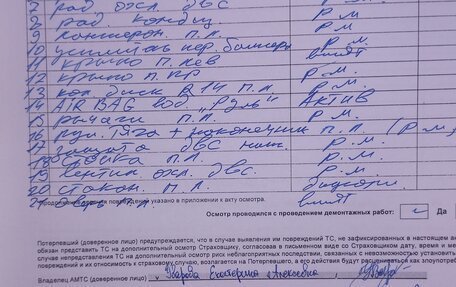 7 рад. охл. ДВС р.м
8 рад. кондиц. р.м
9 лонжерон п.л. р.м
10 усилитель пер. бампера р.м.
11 крыло п. лев вмят
12 крыло п. пр р.м.
13 кол. диск R14 п.л. р.м.
14 AIR BAG вод. „Руль" АКТИВ
15 рычаги п.л. р.м
16 рул. тяга + наконечник п.л (р.м,
17 защита ДВС ниж. р.м.
18 п.л. р.м.
19 вентил. охл. ДВС. р.м.
20 п.л.
21 п.л. вмят
Продолжение данных повреждений указано в приложении к акту осмотра.
Осмотр проводился с проведением демонтажных работ: ✓ Да
Потерпевший (доверенное лицо) предупреждается, что в случае выявления им повреждений ТС, не зафиксированных в настоящем ак
обязан представить ТС на дополнительный осмотр Страховщику, согласовав в письменном виде со Страховщиком дату, время и мес
случае непредставления ТС на дополнительный осмотр риск неблагоприятных последствий, связанных с невозможностью установить
повреждений и их относимость к страховому случаю, возлагается на Потерпевшего, а его действия будут расцениваться как злоупотребл
Владелец АМТС (доверенное лицо) - Екатерина Алексеевна,